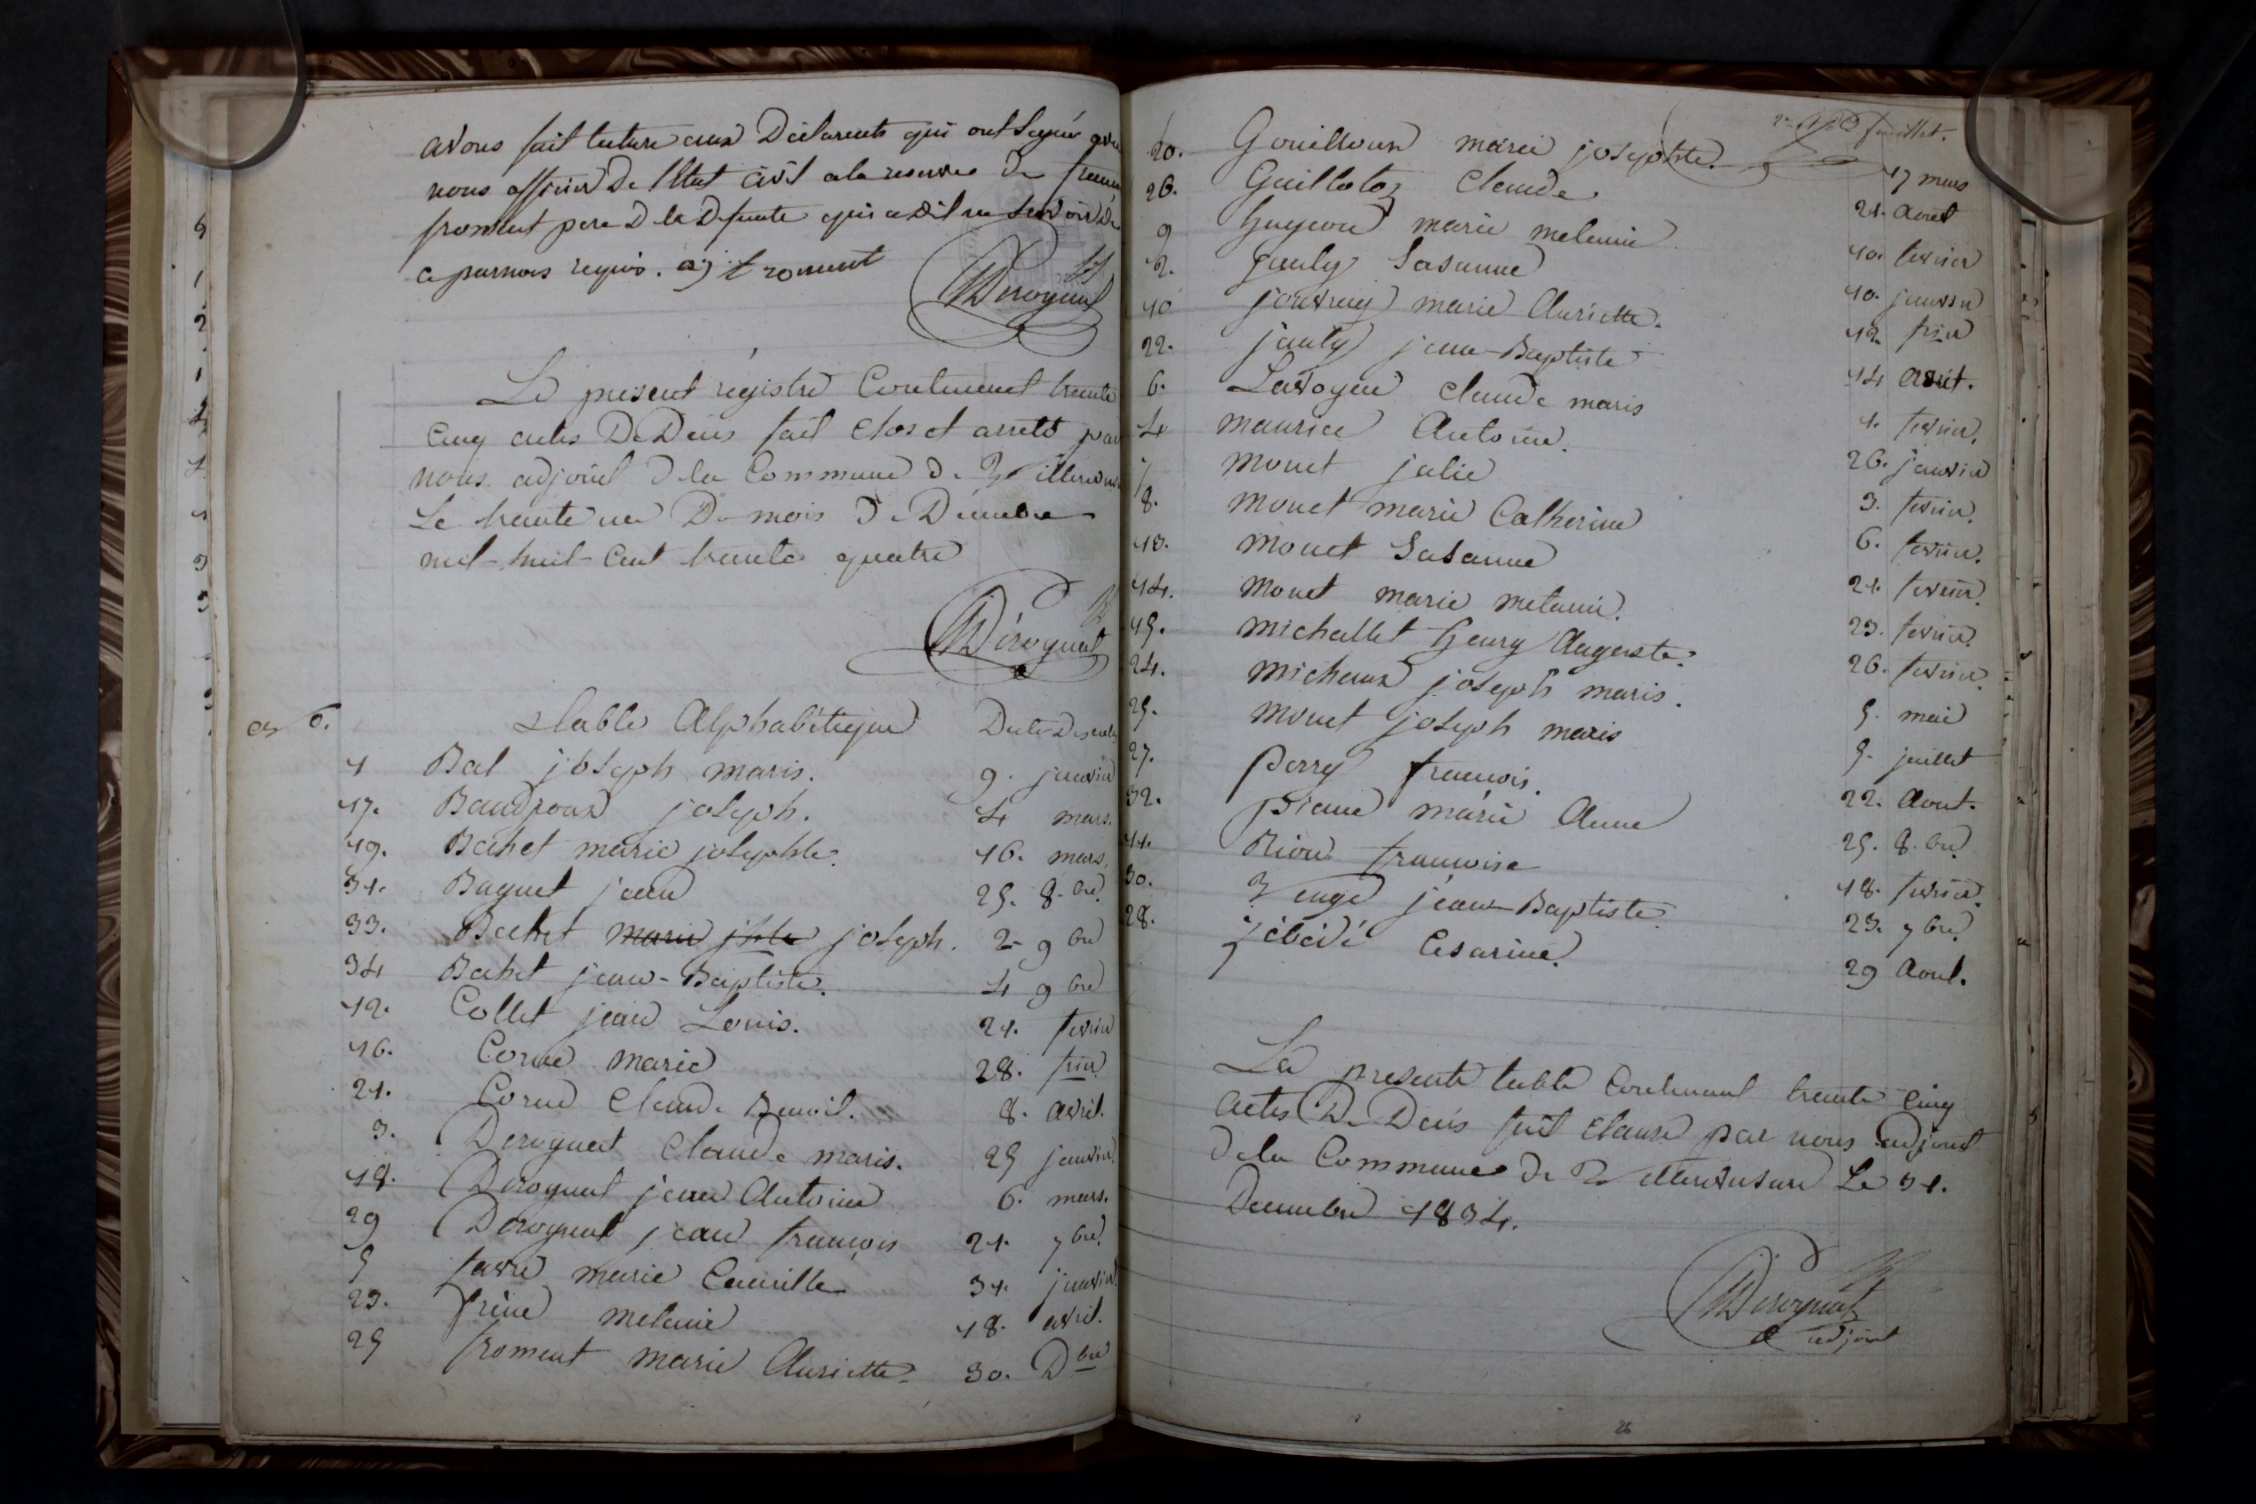 avons fait lecture aux Déclarents qui ont signé avec
nous officier De l'Etat civil a la reserve de
froment pere D la Defunte qui a dit ne savoir De
ce par nous requis. aj froment
Deroynat
Le present régistre Contenent trente
Cinq actes De Décis fait Clos et arreté par
nous adjoint D la Commune de Villereversure
Le trente un D mois De Décembre
mil huit Cent trente quatre
Déroynat
Table Alphabétique Date Des actes
1 Bal joseph marie. 9. janvier
17. Baudpoux joseph. 4 mars.
19. Bahet marie josephte. 16. mars.
31. Baguet jean 25. 8.bre
33. Bahet marie jphte joseph. 2 9bre
34 Bahet jean-Baptiste. 4 9bre
12. Collet jean Louis. 21. fevrier
16. Corne marie 28. fvier
21. Corne Claude Benoit. 8. avril.
3. Deroynat Claude marie. 25 janvier
18. Deroynat jean Antoine 6. mars.
29 Deroynat jean françois 21. 7bre
5 favre marie Camille 31. janvier
23. frêne melanie 18. avril.
25 froment marie Auriette 30. Dbre
feuillet.
20. Gouilloux marie josephte. 17 mars
26. Guillotoz Claude. 21. Aout
9 huguon marie melanie 10. fevrier
2. jauly Sasanne 10. janvier
10 jouvrey marie Auriette. 12 fvier
22. jauly jean-Baptiste 14 avril.
6. Lavoyen Claude marie 1. fevrier.
4 maurice Antoine. 26. janvier
7 monet julie 3. fevrier.
8. monet marie Catherine 6. fevrier.
13. monet Sasanne 21. fevrier.
14. monet marie melanie. 23. fevrier.
15. michallet henry Auguste. 26. fevrier.
24. michaux joseph marie. 5. mai
25. monet joseph marie 5. juillet
27. perry francois. 22. Aout.
32. piane marie Anne 25. 8.bre
11. Rion francoise 18. fevrier.
30. Venge jean-Baptiste 23. 7bre
28. jébédé Cesarine. 29 Aout.
La presente table Contenant trente Cinq
actes De Décis fait Clause par nous adjoint
de la Commune De Villereversure Le 31.
Decembre 1834.
Déroynat
adjoint
26